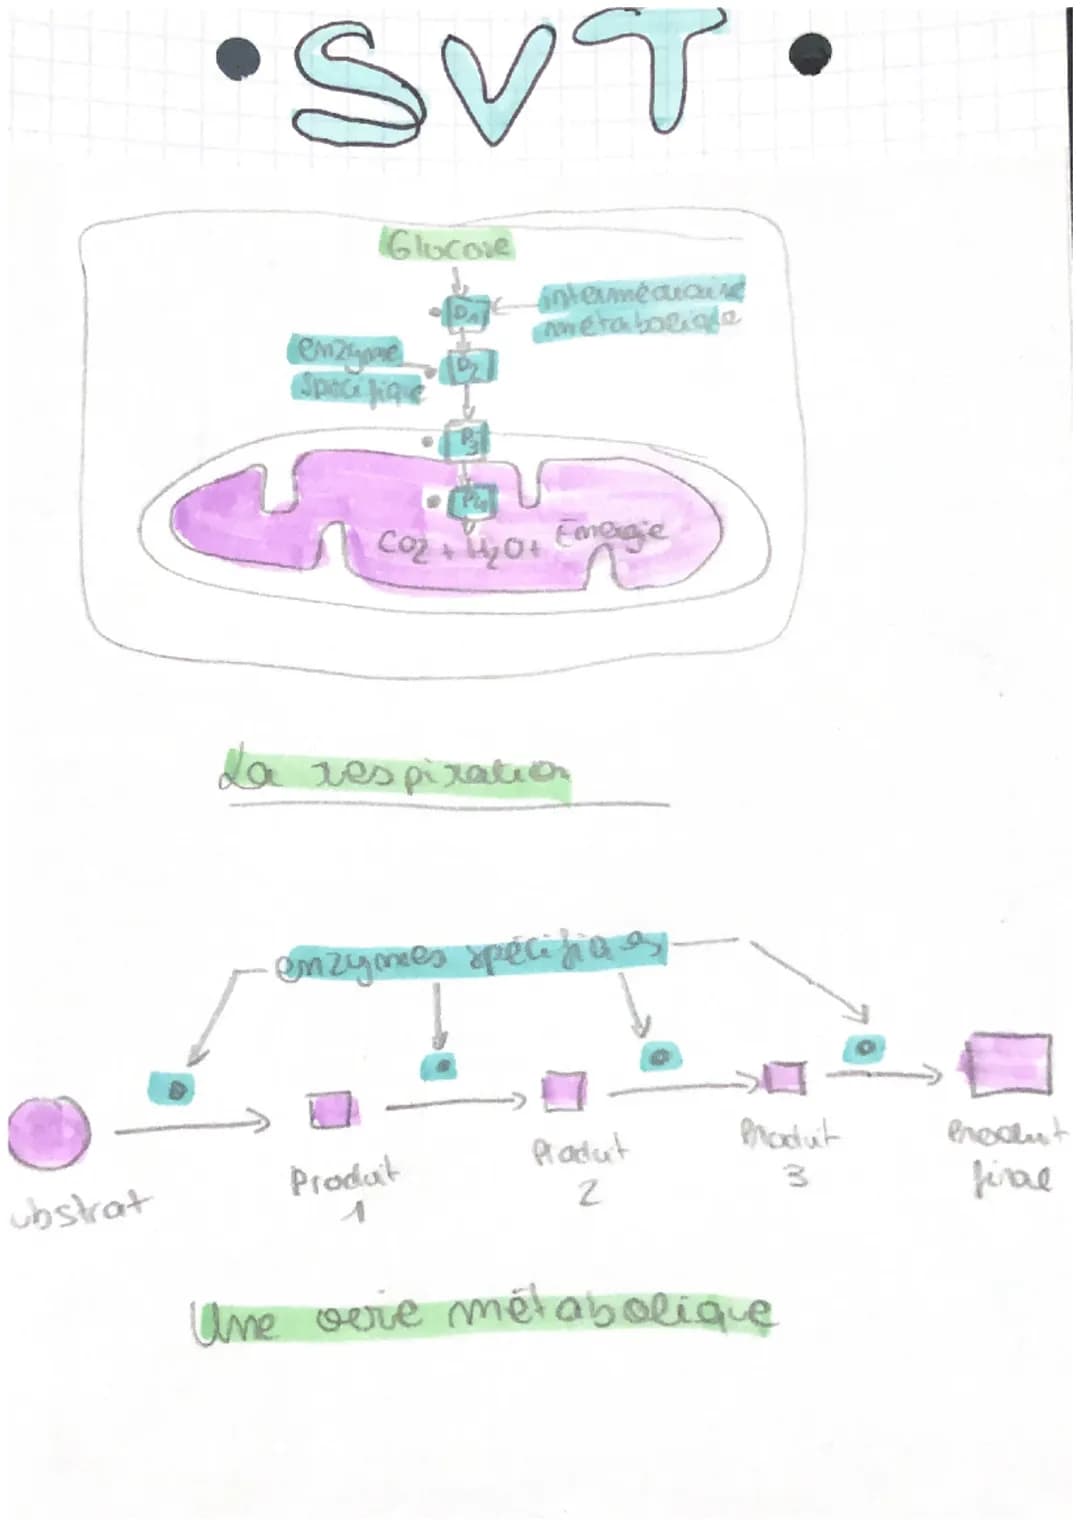 • SVT •
Glucose
intermédiaire
métabolique
enzyme
spécifique
P2
P3
P4
CO2 + H2O + Energie
La respiration
enzymes spécifiques
ubstrat
Produit
1
Produit
2
Produit
3
Produit
final
Une voie métabolique